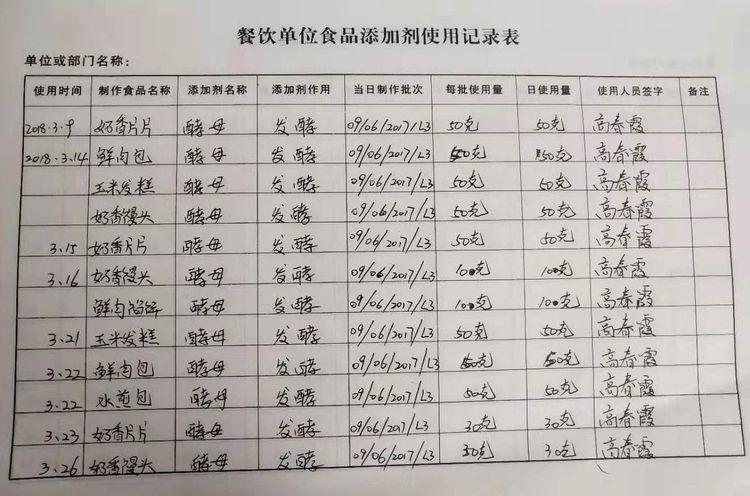 餐饮单位食品添加剂使用记录表
单位或部门名称：
使用时间 制作食品名称 添加剂名称 添加剂作用 当日制作批次 每批使用量 日使用量 使用人员签字 备注
2018.3.9 奶香片片 酵母 发酵 09/06/2017/L3 50克 50克 高春霞
2018.3.14 鲜肉包 酵母 发酵 09/06/2017/L3 50克 50克 高春霞
玉米发糕 酵母 发酵 09/06/2017/L3 50克 50克 高春霞
奶香馒头 酵母 发酵 09/06/2017/L3 50克 50克 高春霞
3.15 奶香片片 酵母 发酵 09/06/2017/L3 50克 50克 高春霞
3.16 奶香馒头 酵母 发酵 09/06/2017/L3 100克 100克 高春霞
鲜肉馅饼 酵母 发酵 09/06/2017/L3 100克 100克 高春霞
3.21 玉米发糕 酵母 发酵 09/06/2017/L3 50克 50克 高春霞
3.22 鲜肉包 酵母 发酵 09/06/2017/L3 50克 50克 高春霞
3.22 水煎包 酵母 发酵 09/06/2017/L3 50克 50克 高春霞
3.23 奶香片片 酵母 发酵 09/06/2017/L3 30克 30克 高春霞
3.26 奶香馒头 酵母 发酵 09/06/2017/L3 30克 30克 高春霞